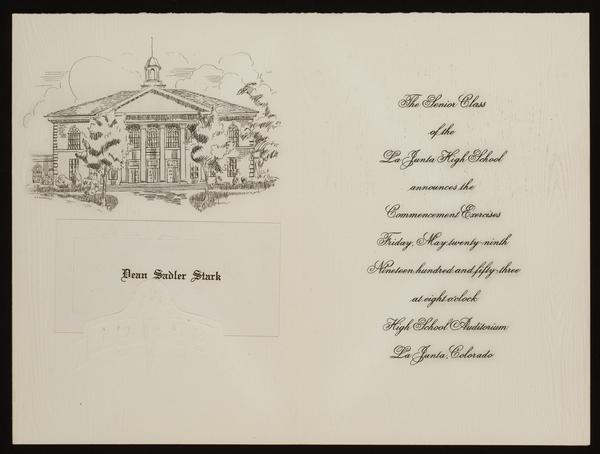 Dean Sadler Stark
The Senior Class
of the
La Junta High School
announces the
Commencement Exercises
Friday, May twenty-ninth
Nineteen hundred and fifty-three
at eight o'clock
High School Auditorium
La Junta, Colorado